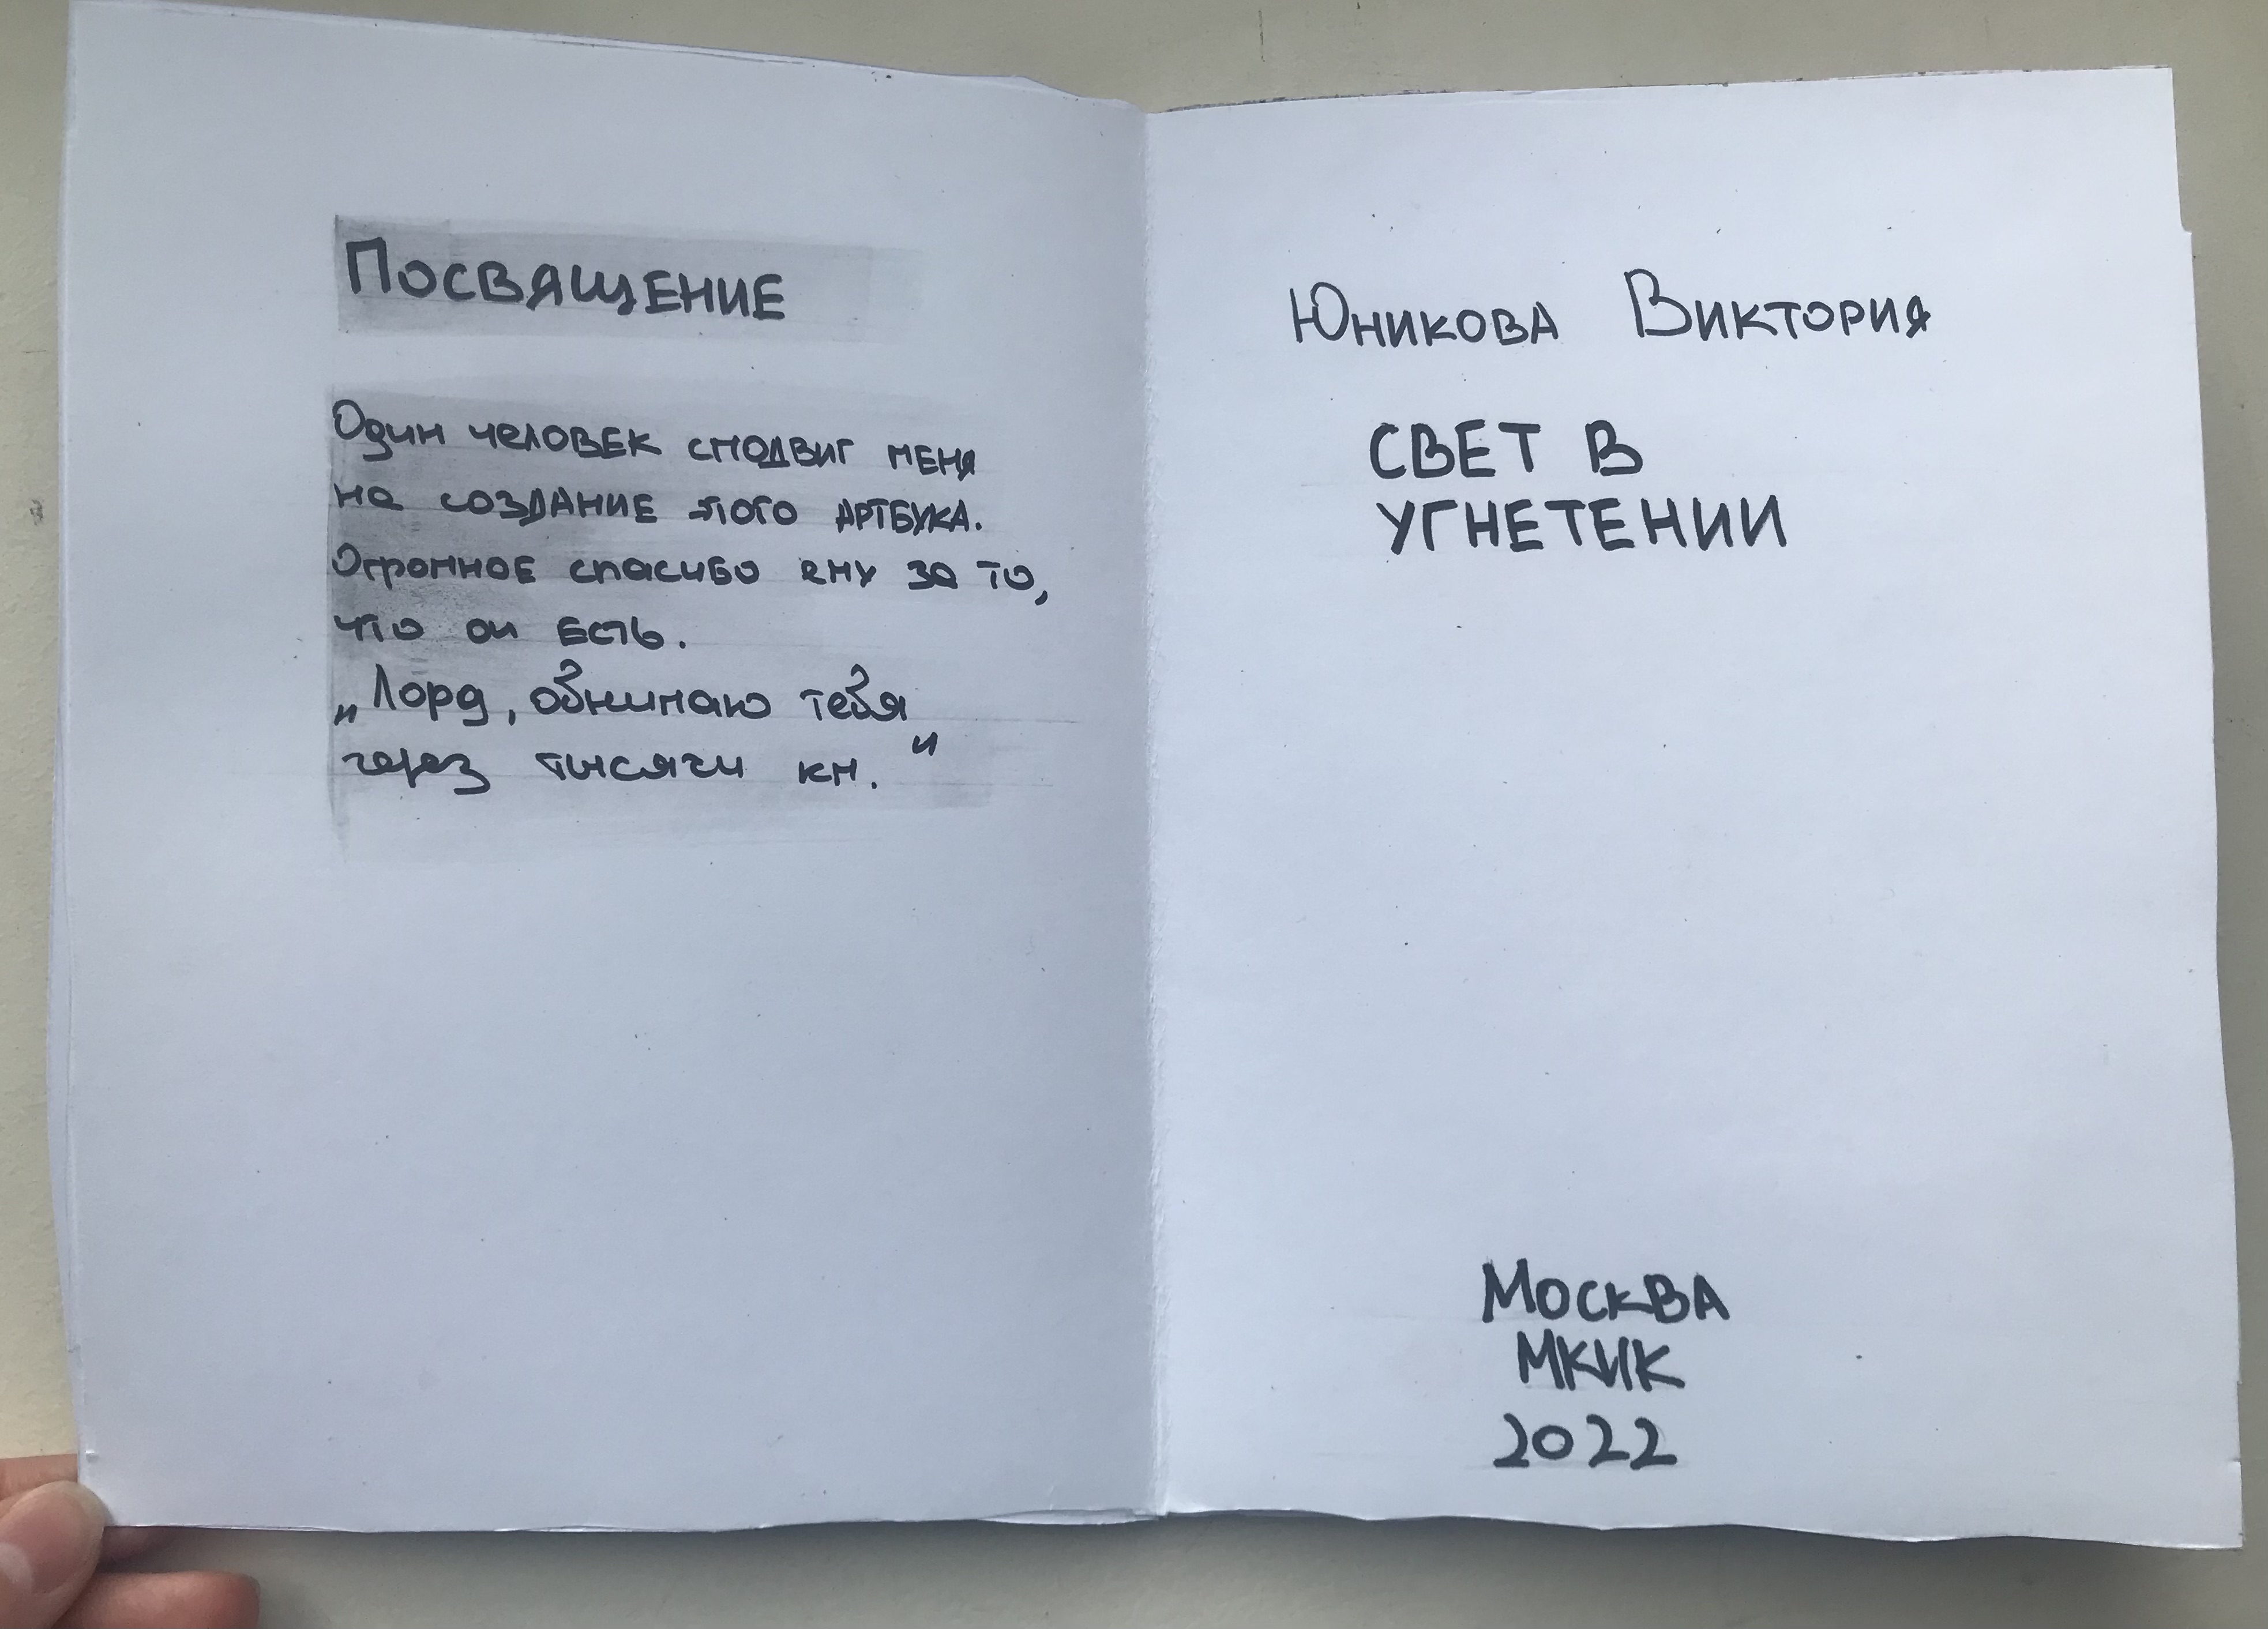 Посвящение
Один человек сподвиг меня
на создание этого артбука.
Огромное спасибо ему за то,
что он есть.
„Лорд, обнимаю тебя
через тысячи км.“
Юникова Виктория
СВЕТ В
УГНЕТЕНИИ
Москва
МКИК
2022